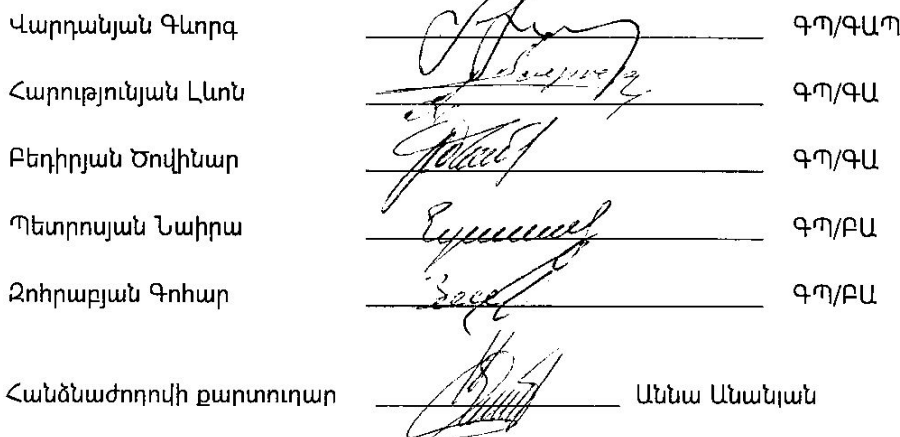 Վարդանյան Գևորգ ԳՊ/ԳԱՊ
Հարությունյան Լևոն ԳՊ/ԳԱ
Բեդիրյան Ծովինար ԳՊ/ԳԱ
Պետրոսյան Նաիրա ԳՊ/ԲԱ
Զոհրաբյան Գոհար ԳՊ/ԲԱ
Հանձնաժողովի քարտուղար Աննա Անանյան